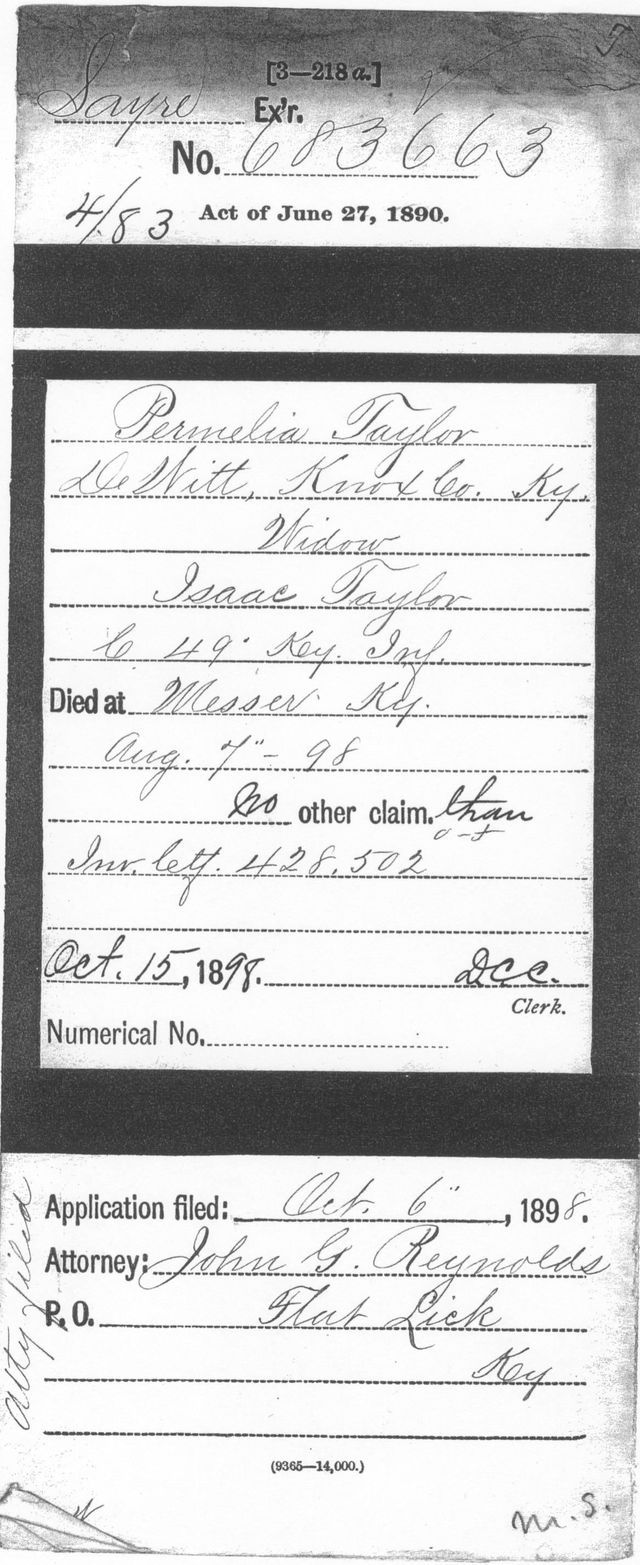 [3—218 a.]
Sayre Ex'r.
No. 683663
4/83 Act of June 27, 1890.
Permelia Taylor
DeWitt, Knox Co. Ky.
Widow
Isaac Taylor
C 49" Ky. Inf.
Died at Messer Ky.
Aug. 7"- 98
No other claim. than
Inv. Ctf. 428.502
Oct. 15, 1898. DCC.
Clerk.
Numerical No.
Application filed: Oct. 6", 1898.
Attorney: John G. Reynolds
P.O. Flat Lick
Ky
atty filed
(9365—14,000.)
M. S.